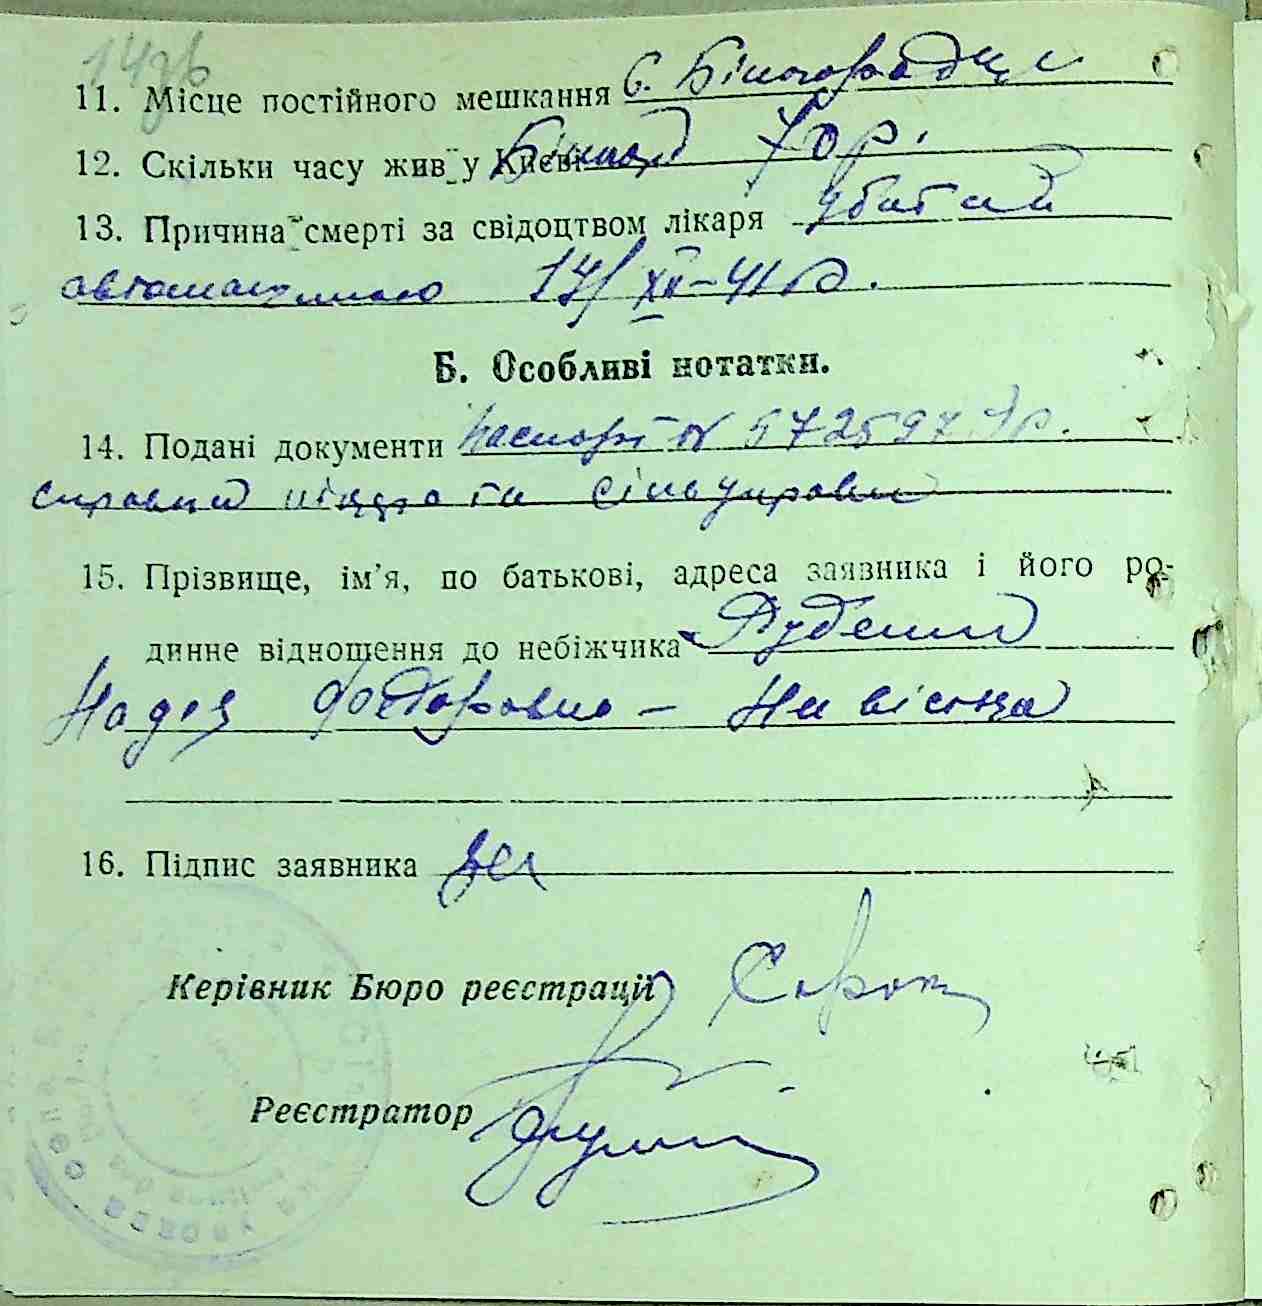 11. Місце постійного мешкання с. Білогородци
12. Скільки часу жив у Києві 70 р.
13. Причина смерті за свідоцтвом лікаря убитий
автомашиною 14/XII-41 р.
Б. Особливі нотатки.
14. Подані документи паспорт № 572597
справка сільуправи
15. Прізвище, ім’я, по батькові, адреса заявника і його ро-
динне відношення до небіжчика Руденко
Надія Федоровна - Нивістка
16. Підпис заявника
Керівник Бюро реєстрації
Реєстратор